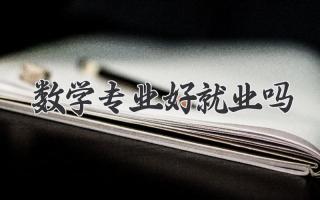 数学专业好就业吗